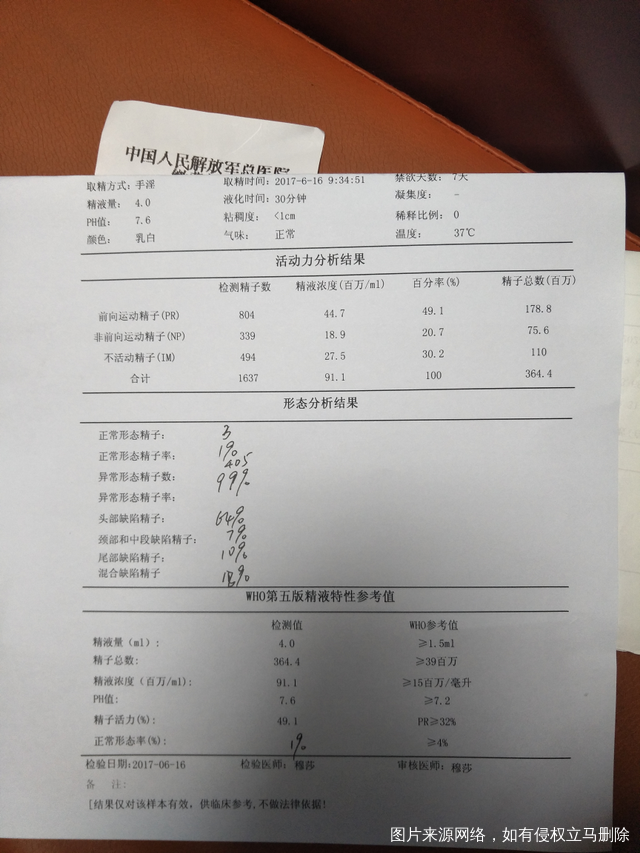 中国人民解放军总医院
取精方式：手淫 取精时间：2017-6-16 9:34:51 禁欲天数： 7天
精液量： 4.0 液化时间：30分钟 凝集度： -
PH值： 7.6 粘稠度： <1cm 稀释比例： 0
颜色： 乳白 气味： 正常 温度： 37℃
活动力分析结果
检测精子数 精液浓度(百万/ml) 百分率(%) 精子总数(百万)
前向运动精子(PR) 804 44.7 49.1 178.8
非前向运动精子(NP) 339 18.9 20.7 75.6
不活动精子(IM) 494 27.5 30.2 110
合计 1637 91.1 100 364.4
形态分析结果
正常形态精子： 3
正常形态精子率： 1%
异常形态精子数： 405
异常形态精子率： 99%
头部缺陷精子： 64%
颈部和中段缺陷精子： 7%
尾部缺陷精子： 10%
混合缺陷精子
WHO第五版精液特性参考值
检测值 WHO参考值
精液量（ml）： 4.0 ≥1.5ml
精子总数： 364.4 ≥39百万
精液浓度（百万/ml)： 91.1 ≥15百万/毫升
PH值： 7.6 ≥7.2
精子活力(%)： 49.1 PR≥32%
正常形态率(%)： 1% ≥4%
检验日期:2017-06-16 检验医师：穆莎 审核医师：穆莎
备 注：
[结果仅对该样本有效，供临床参考,不做法律依据!
图片来源网络，如有侵权立马删除